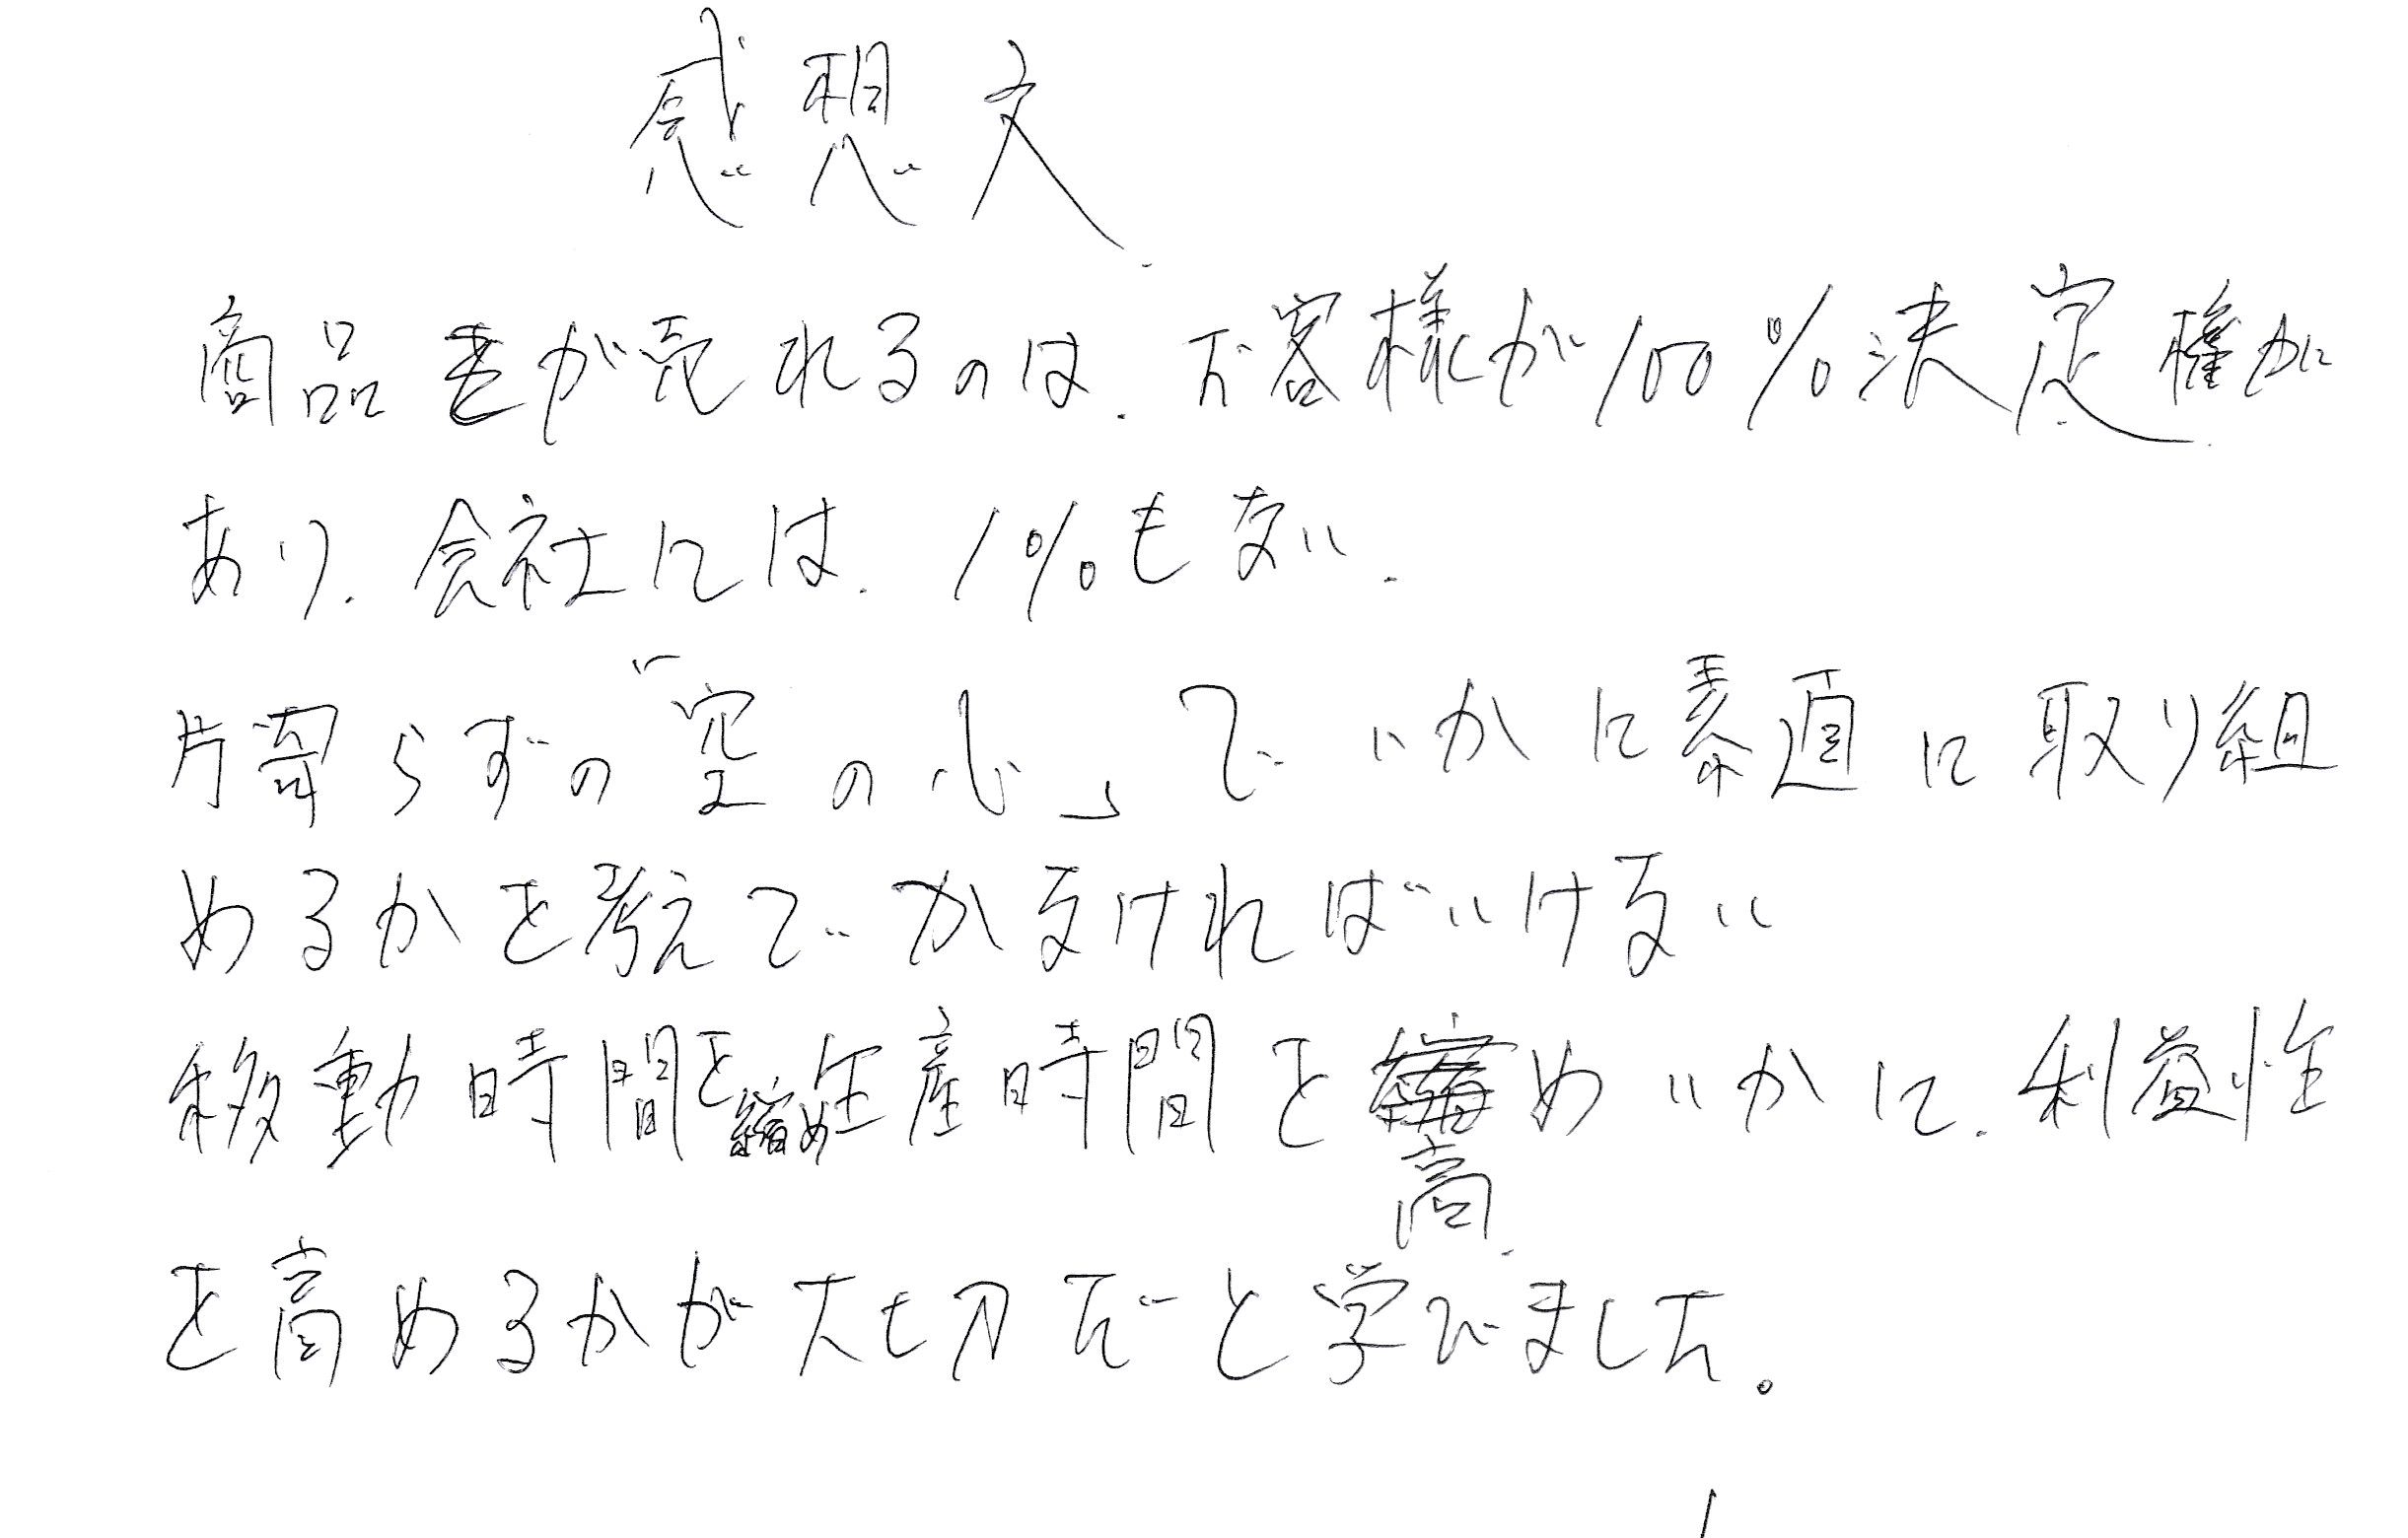 感想文
商品が売れるのは、お客様が100%決定権が
あり、会社には、1%もない、
片寄らずの「空の心」で、いかに素直に取り組
めるかを考えでかなければいけない
移動時間を縮め生産時間を高めいかに、利益性
を高めるかが大切だと学びました。